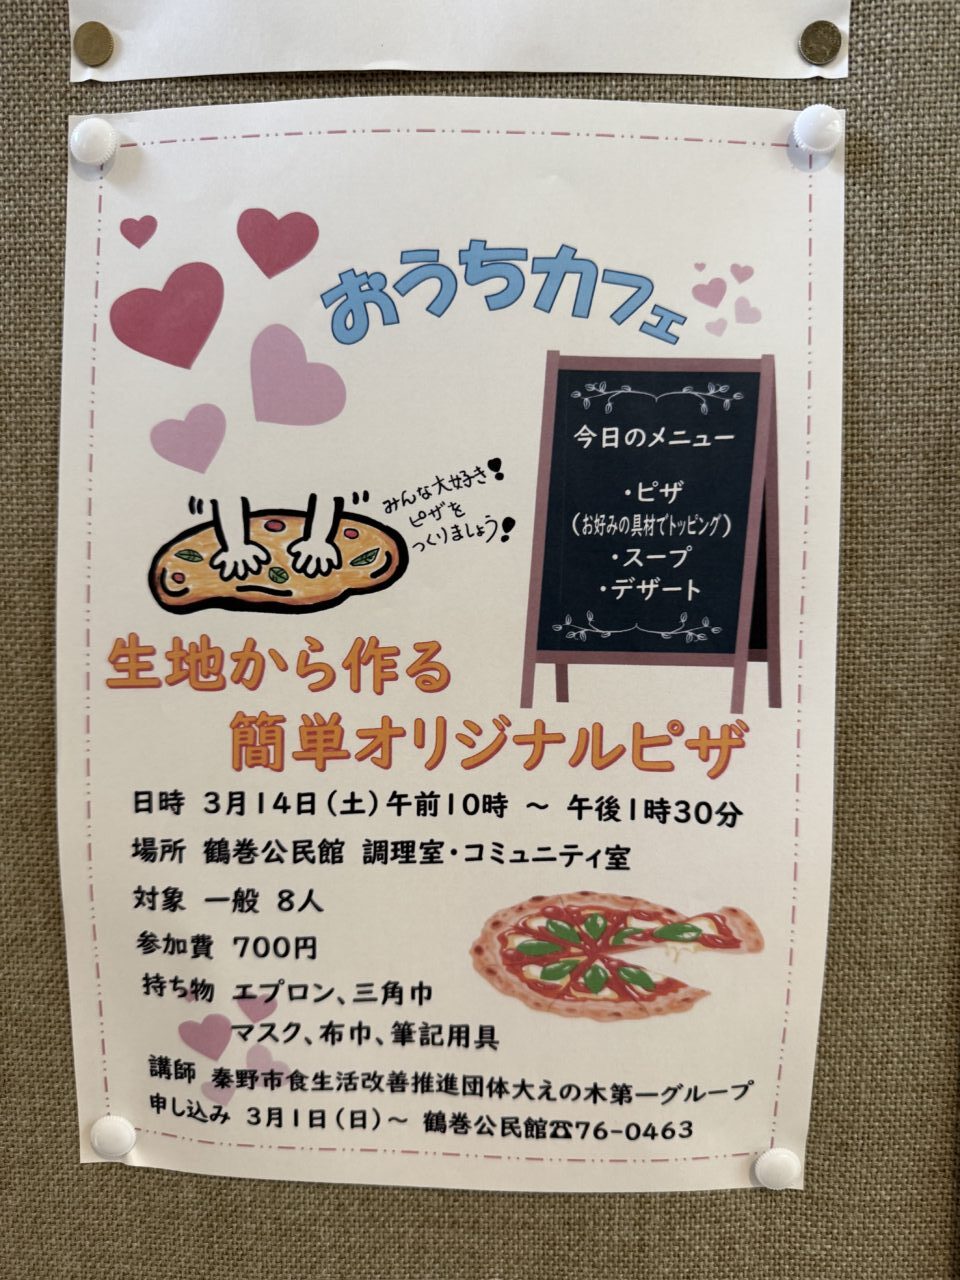 おうちカフェ
今日のメニュー
・ピザ
(お好みの具材でトッピング)
・スープ
・デザート
みんな大好き!
ピザを
つくりましょう!
生地から作る
簡単オリジナルピザ
日時 3月14日(土)午前10時 ～ 午後1時30分
場所 鶴巻公民館 調理室・コミュニティ室
対象 一般 8人
参加費 700円
持ち物 エプロン、三角巾
マスク、布巾、筆記用具
講師 秦野市食生活改善推進団体大えの木第一グループ
申し込み 3月1日(日)～ 鶴巻公民館☎76-0463